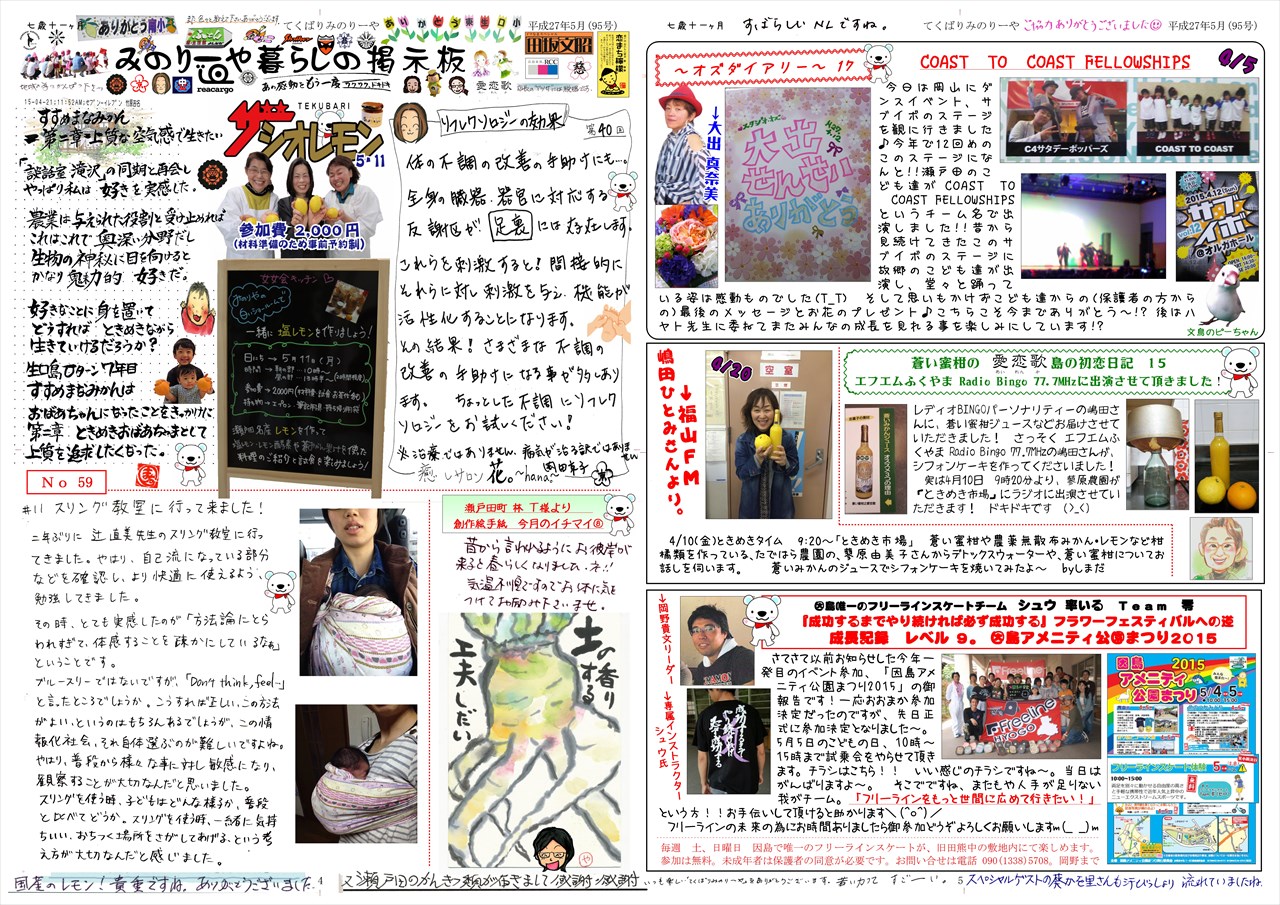 七歳十一ヶ月
てくばりみのりーや
ありがとう東生口小
平成27年5月(95号)
ありがとう南小
みのりーや暮らしの掲示板
reacargo
あの感動ともう一度 ワクワク、ドキドキ
愛恋歌
田坂文昭
RCC
恋まち珈琲
15-04-21;11:52AM;セブン-イレブン
すすめまなみかん
第二章・上質な空気感で生きたい
「談話室 滝沢」の同期と再会し
やっぱり私は 好きを実感した。
農業は与えられた役割と受け止めれば
これはこれで奥深い分野だし
生物の神秘に目を向けると
かなり魅力的 好きだ。
好きなことに身を置いて
どうすれば ときめきながら
生きていけるだろうか?
生口島Uターン7年目
すすめまなみかんは
おばあちゃんになったことをきっかけに
第二章 ときめきおばあちゃまとして
上質を追求したくなった。
TEKUBARI
ザ・シオレモン
5・11
参加費 2,000円
(材料準備のため事前予約制)
女女会キッチン
みのりやのルームで
白いシューレで
一緒に塩レモンを作りましょう!
日にち → 5月11日(月)
瀬戸田名産 レモンを作って
料理のご紹介と試食を楽しみましょう!
リフレクソロジーの効果
第40回
体の不調の改善の手助けにも…。
全身の臓器・器官に対応する
反射区が 足裏 には存在します。
これらを刺激すると! 間接的に
それらに対し刺激を与え、機能が
活性化することになります。
その結果! さまざまな不調の
改善の手助けになる事が多々あり
ます。 ちょっとした不調にリフレク
ソロジーをお試しください!
※治療ではありません。病気が治る訳ではありません
癒しサロン 花。~hana~
岡田幸子
No 59
#11 スリング教室に行って来ました!
二年ぶりに 辻 直美先生のスリング教室に行っ
てきました。やはり、自己流になっている部分
などを確認し、より快適に使えるよう、
勉強してきました。
その時、とても実感したのが「方法論にとら
われすぎて、体感することを疎かにしているなぁ」
ということです。
ブルースリーではないですが、「Don't think, feel~」
と言ったところでしょうか。こうすれば正しい、この方法
がよい、というのはもちろんあるでしょうが、この情
報化社会、それ自体選ぶのが難しいですよね。
やはり、普段から様々な事に対し敏感になり、
観察することが大切なんだと思いました。
スリングを使う時、子どもはどんな様子か、普段
と比べてどうか。スリングを使う時、一緒に気持
ちいい、おちつく場所をさがしてあげる、という考
え方が大切なんだと感じました。
瀬戸田町 林 T様より
創作絵手紙 今月のイチマイ⑧
昔から言われるようにお彼岸が
来ると春らしくなりました.ネ!!
気温不順ですのでお体に気を
つけてお励み下さいませ。
土の香りする
工夫いだい
や
国産のレモン!貴重ですね。ありがとうございました。
4
又、瀬戸田のかんきつ類が届きまして感謝・感謝
七歳十一ヶ月
すばらしいNLですね。
てくばりみのりーや
ご協力ありがとうございました
平成27年5月(95号)
~オズダイアリー~ 17
COAST TO COAST FELLOWSHIPS
4/5
→大出 真奈美
スタジオオズ
大出せんせいありがとう
今日は岡山にダ
ンスイベント、サ
ブイボのステージ
を観に行きました
♪今年で12回めの
このステージにな
んと!!瀬戸田のこ
ども達が COAST TO
COAST FELLOWSHIPS
というチーム名で出
演しました!!昔から
見続けてきたこのサ
ブイボのステージに
故郷のこども達が出
演し、堂々と踊って
いる姿は感動ものでした(T_T) そして思いもかけずこども達からの(保護者の方から
の)最後のメッセージとお花のプレゼント♪こちらこそ今までありがとう~!? 後はハ
ヤト先生に委ねてまたみんなの成長を見れる事を楽しみにしています!?
C4サタデーポッパーズ
COAST TO COAST
2015.4.12(Sun)
サブイボ
vol.12
@オルガホール
文鳥のピーちゃん
嶋田ひとみさんより。
→福山FM
4/20
空室
蒼い蜜柑の 愛恋歌 島の初恋日記 15
エフエムふくやま Radio Bingo 77.7MHzに出演させて頂きました!
レディオBINGOパーソナリティーの嶋田さ
んに、蒼い蜜柑ジュースなどお届けさせて
いただきました! さっそく エフエムふ
くやま Radio Bingo 77.7MHzの嶋田さんが、
シフォンケーキを作ってくださいました!
実は4月10日 9時20分より、蓼原農園が
『ときめき市場』にラジオに出演させてい
ただきます! ドキドキです (>_<)
4/10(金)ときめきタイム 9:20~「ときめき市場」 蒼い蜜柑や農薬無散布みかん・レモンなど柑
橘類を作っている、たではら農園の、蓼原由美子さんからデトックスウォーターや、蒼い蜜柑についてお
話しを伺います。 蒼いみかんのジュースでシフォンケーキを焼いてみたよ~ byしまだ
→岡野貴文リーダー →専属インストラクター シュウ氏
㊛島唯一のフリーラインスケートチーム シュウ 率いる Team 零
『成功するまでやり続ければ必ず成功する』フラワーフェスティバルへの道
成長記録 レベル 9。 ㊛島アメニティ公園まつり2015
さてさて以前お知らせした今年一
発目のイベント参加、「因島アメ
ニティ公園まつり2015」の御
報告です!一応おおまか参加
決定だったのですが、先日正
式に参加決定となりました~。
5月5日のこどもの日、10時~
15時まで試乗会をやらせて頂き
ます。チラシはこちら!! いい感じのチラシですね~。当日は
がんばりますよ~。 そこでですね、またもや人手が足りない
我がチーム。「フリーラインをもっと世間に広めて行きたい!」
という方!!お手伝いして頂けると助かります\(^o^)/
フリーラインの未来の為にお時間ありましたら御参加どうぞよろしくお願いしますm(_ _)m
Freeline
HYOGO
因島
2015
アメニティ
公園まつり
5/4・5
フリーラインスケート体験
10:00~15:00
毎週 土、日曜日 因島で唯一のフリーラインスケートが、旧田熊中の敷地内にて楽しめます。
参加は無料。未成年者は保護者の同意が必要です。お問い合せは電話 090(1338)5708。岡野まで
いつも楽しい「てくばりみのりーや」をありがとうございます。
5
スペシャルゲストの葵かを里さんも汗びっしょり 流れていましたね。